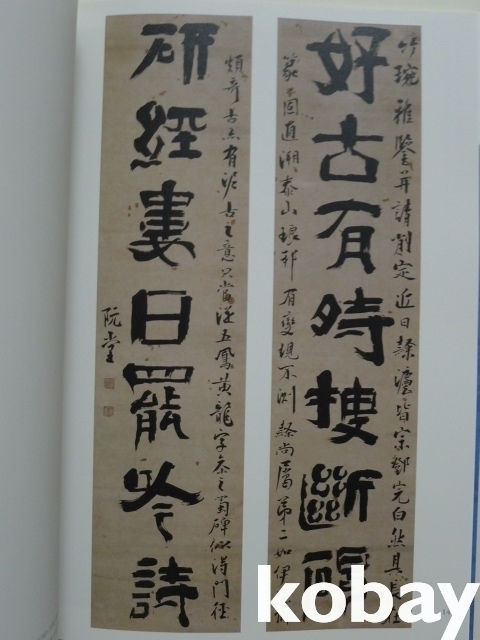 竹琬雅鑒并請削定近日隸法皆宗鄧完白然其長
好古有時搜斷
篆篆固直溯泰山琅邪有變現不測隸尙屬第二如伊
頗奇古亦有泥古之意只當從五鳳黃龍字參之蜀碑似得門徑
硏經婁日罷吟詩
阮堂
kobay